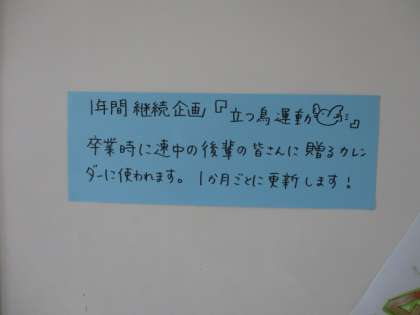 1年間継続企画『立つ鳥運動』
卒業時に連中の後輩の皆さんに贈るカレン
ダーに使われます。1か月ごとに更新します!